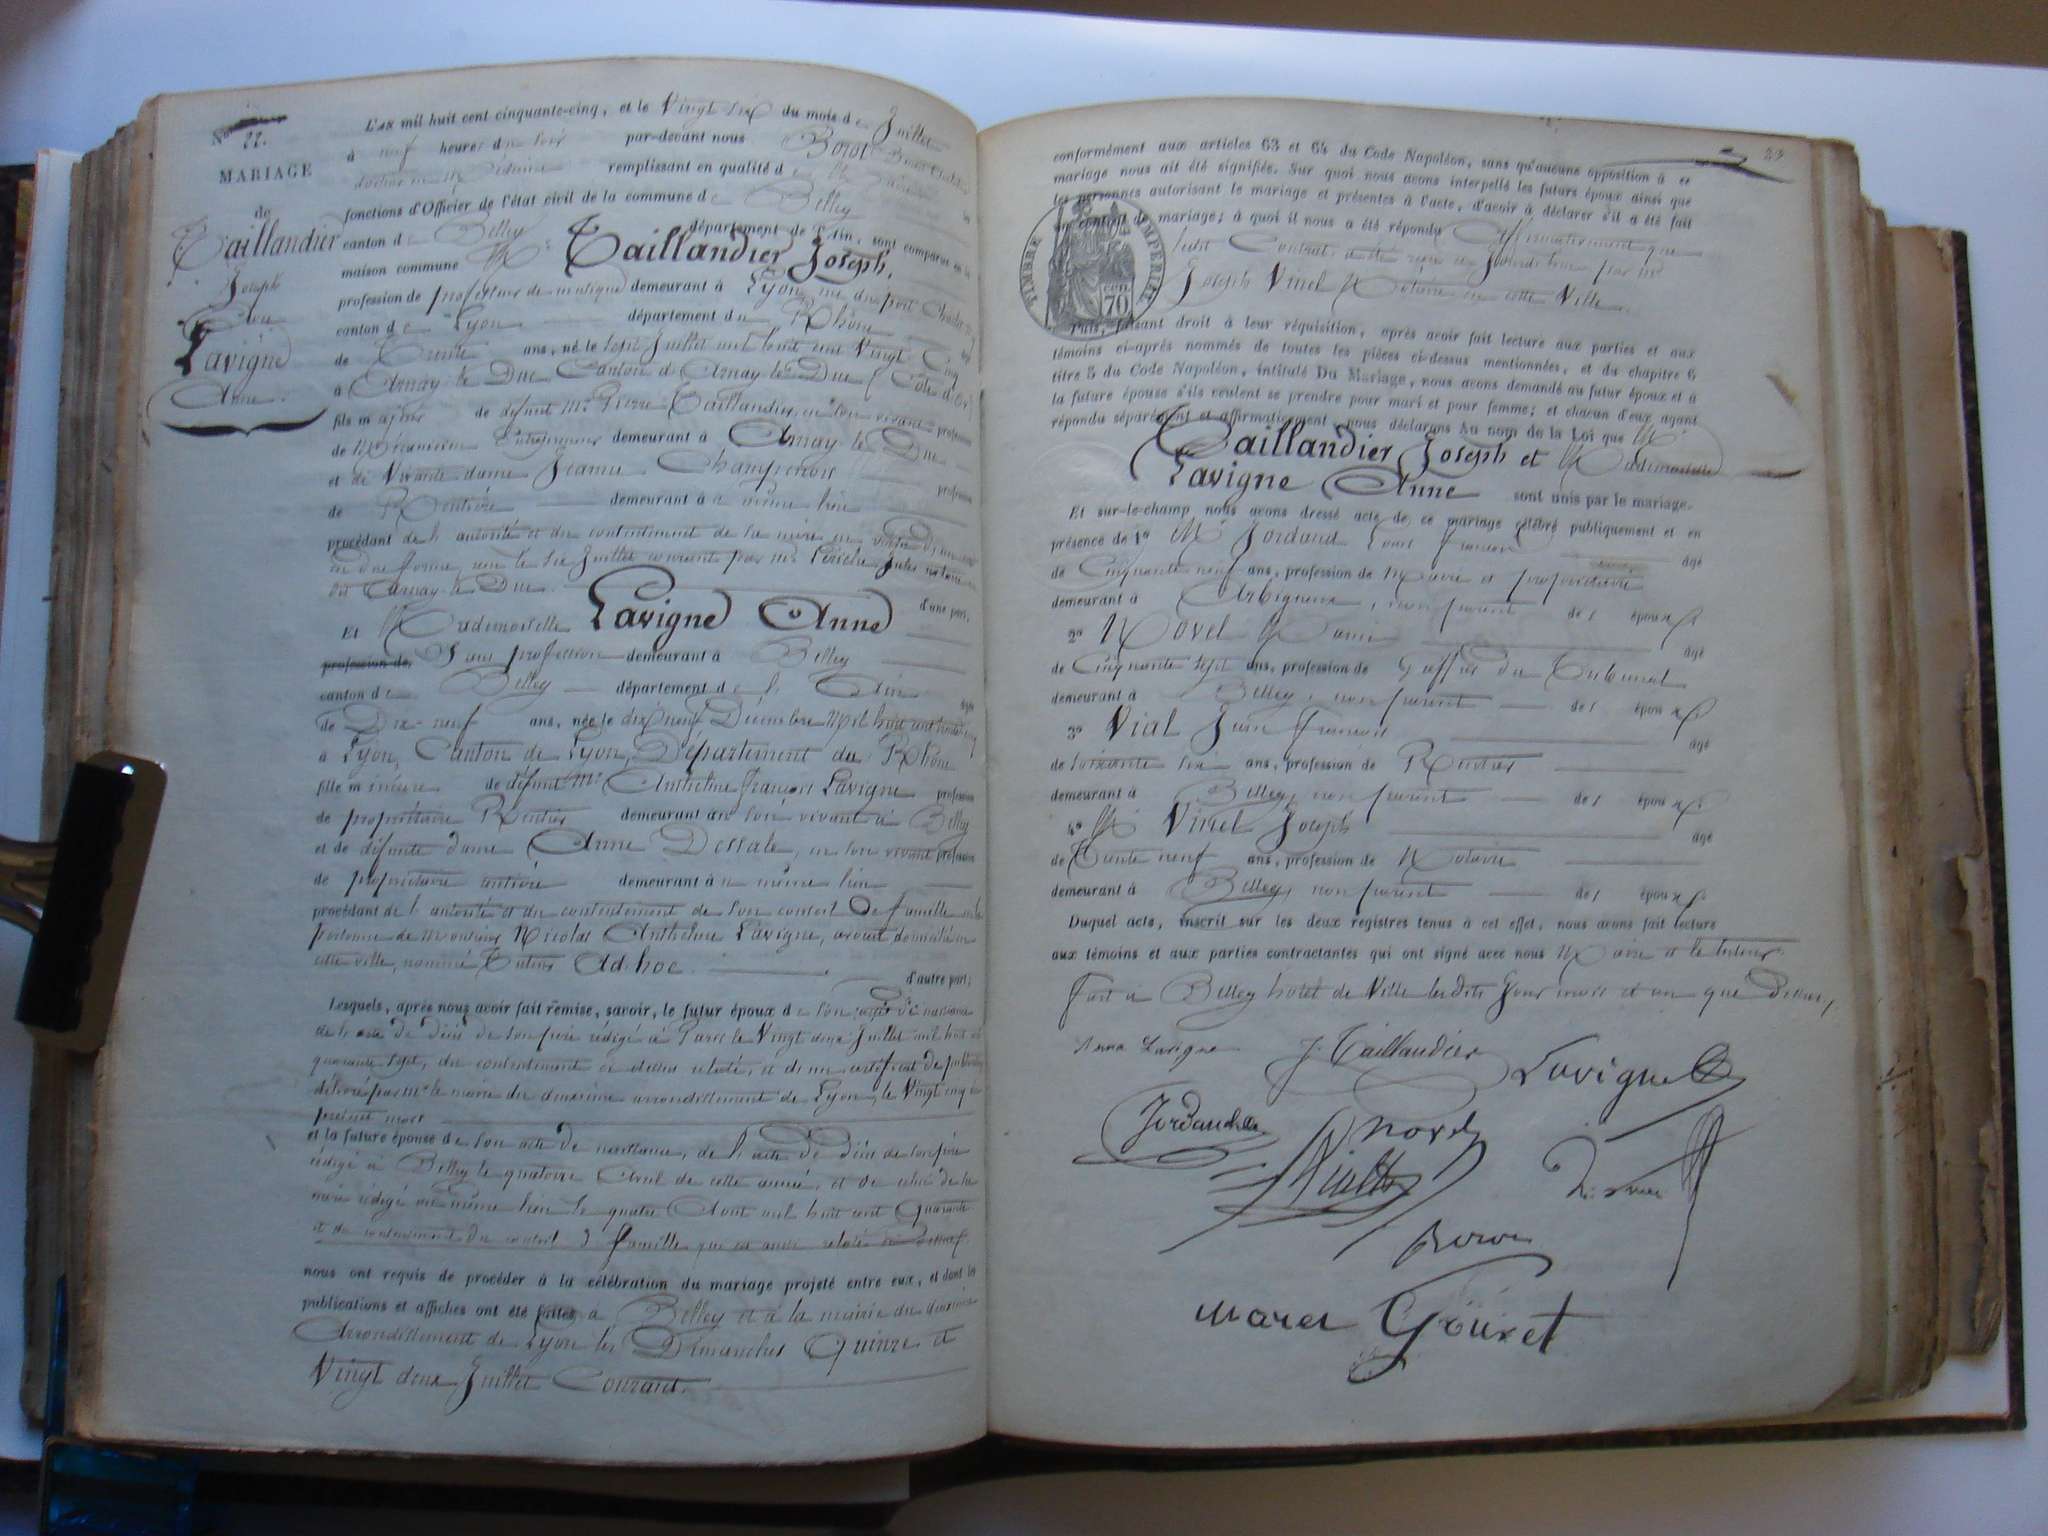 L'AN mil huit cent cinquante-cinq, et le Vingt six du mois de Juillet
Nº 22.
à neuf heures du soir par-devant nous Bozot
MARIAGE
docteur en Médecine remplissant en qualité de
fonctions d'Officier de l'état civil de la commune de Belley
de
canton de Belley département de l'Ain, sont comparus en la
Taillandier
maison commune Mr Taillandier Joseph,
Joseph
profession de professeur de musique demeurant à Lyon, rue du port Charlet
Avec
canton de Lyon département du Rhône
Lavigne
de Trente ans, né le sept Juillet mil huit cent Vingt Cinq
Anne.
à Arnay le Duc, Canton d'Arnay le Duc (Côte d'Or)
fils majeur de défunt Mr Pierre Taillandier, en son vivant profession
de Mécanicien Entrepreneur demeurant à Arnay le Duc
et de Vivante dame Jeanne Champenois profession
de Rentière demeurant au même lieu
procédant de l'autorité et du consentement de sa mère en vertu d'un acte
en due forme, reçu le six Juillet courant par Me Jules notaire
dit Arnay le Duc d'une part,
Et Mademoiselle Lavigne Anne
profession de Sans profession demeurant à Belley
canton de Belley département de l'Ain âgée
de Dix-neuf ans, née le dix neuf Décembre Mil huit cent trente cinq
à Lyon, Canton de Lyon, Département du Rhône
fille mineure de défunt Mr Anthelme françois Lavigne profession
de propriétaire Rentier demeurant en son vivant à Belley
et de défunte dame Anne Dessale, en son vivant profession
de propriétaire rentière demeurant au même lieu
procédant de l'autorité et du consentement de son conseil De famille
personne de Monsieur Nicolas Anthelme Lavigne, avoué domicilié en
cette ville, nommé Tuteur Ad-hoc. d'autre part;
Lesquels, après nous avoir fait remise, savoir, le futur époux de son acte de naissance
de l'acte de décès de son père rédigé à Paris le Vingt deux Juillet mil huit cent
quarante sept, du consentement ci dessus relaté, et d'un certificat de publication
délivré par Mr le maire du deuxième arrondissement de Lyon, le Vingt cinq
présent mois
et la future épouse de son acte de naissance, de l'acte de décès de son père
rédigé à Belley le quatorze Avril de cette année, et de celui de sa
mère rédigé au même lieu le quatre Aout mil huit cent Quarante
et du consentement du conseil de famille que est aussi relaté
nous ont requis de procéder à la célébration du mariage projeté entre eux, et dont les
publications et affiches ont été faites à Belley et à la mairie du deuxième
Arrondissement de Lyon les Dimanches Quinze et
Vingt deux Juillet Courant.
23
conformément aux articles 63 et 64 du Code Napoléon, sans qu'aucune opposition à ce
mariage nous ait été signifiée. Sur quoi nous avons interpellé les futurs époux ainsi que
les personnes autorisant le mariage et présentes à l'acte, d'avoir à déclarer s'il a été fait
un contrat de mariage; à quoi il nous a été répondu Affirmativement que
ledit Contrat a été reçu ce Jourd'hui par Me
Joseph Vinel Notaire en cette Ville.
TIMBRE IMPÉRIAL
70 CEN.
Puis, faisant droit à leur réquisition, après avoir fait lecture aux parties et aux
témoins ci-après nommés de toutes les pièces ci-dessus mentionnées, et du chapitre 6
titre 5 du Code Napoléon, intitulé Du Mariage, nous avons demandé au futur époux et à
la future épouse s'ils veulent se prendre pour mari et pour femme; et chacun d'eux ayant
répondu séparément et affirmativement, nous déclarons Au nom de la Loi que Mr
Taillandier Joseph et Mademoiselle
Lavigne Anne sont unis par le mariage.
Et sur-le-champ nous avons dressé acte de ce mariage célébré publiquement et en
présence de 1º Mr Jordand Louis François âgé
de Cinquante neuf ans, profession de Maire et propriétaire
demeurant à Arbignieu, non parent des époux
2º Novel âgé
de Cinquante sept ans, profession de Greffier du Tribunal
demeurant à Belley, non parent des époux
3º Vial Jean François âgé
de soixante six ans, profession de Rentier
demeurant à Belley, non parent des époux
4º Mr Vinel Joseph âgé
de Trente neuf ans, profession de Notaire
demeurant à Belley, non parent des époux
Duquel acte, inscrit sur les deux registres tenus à cet effet, nous avons fait lecture
aux témoins et aux parties contractantes qui ont signé avec nous Maire et le tuteur
fait à Belley hotel de Ville lesdits Jour mois et an que Dessus,
Anna Lavigne J. Taillandier Lavigne
Jordand Novel
Vial